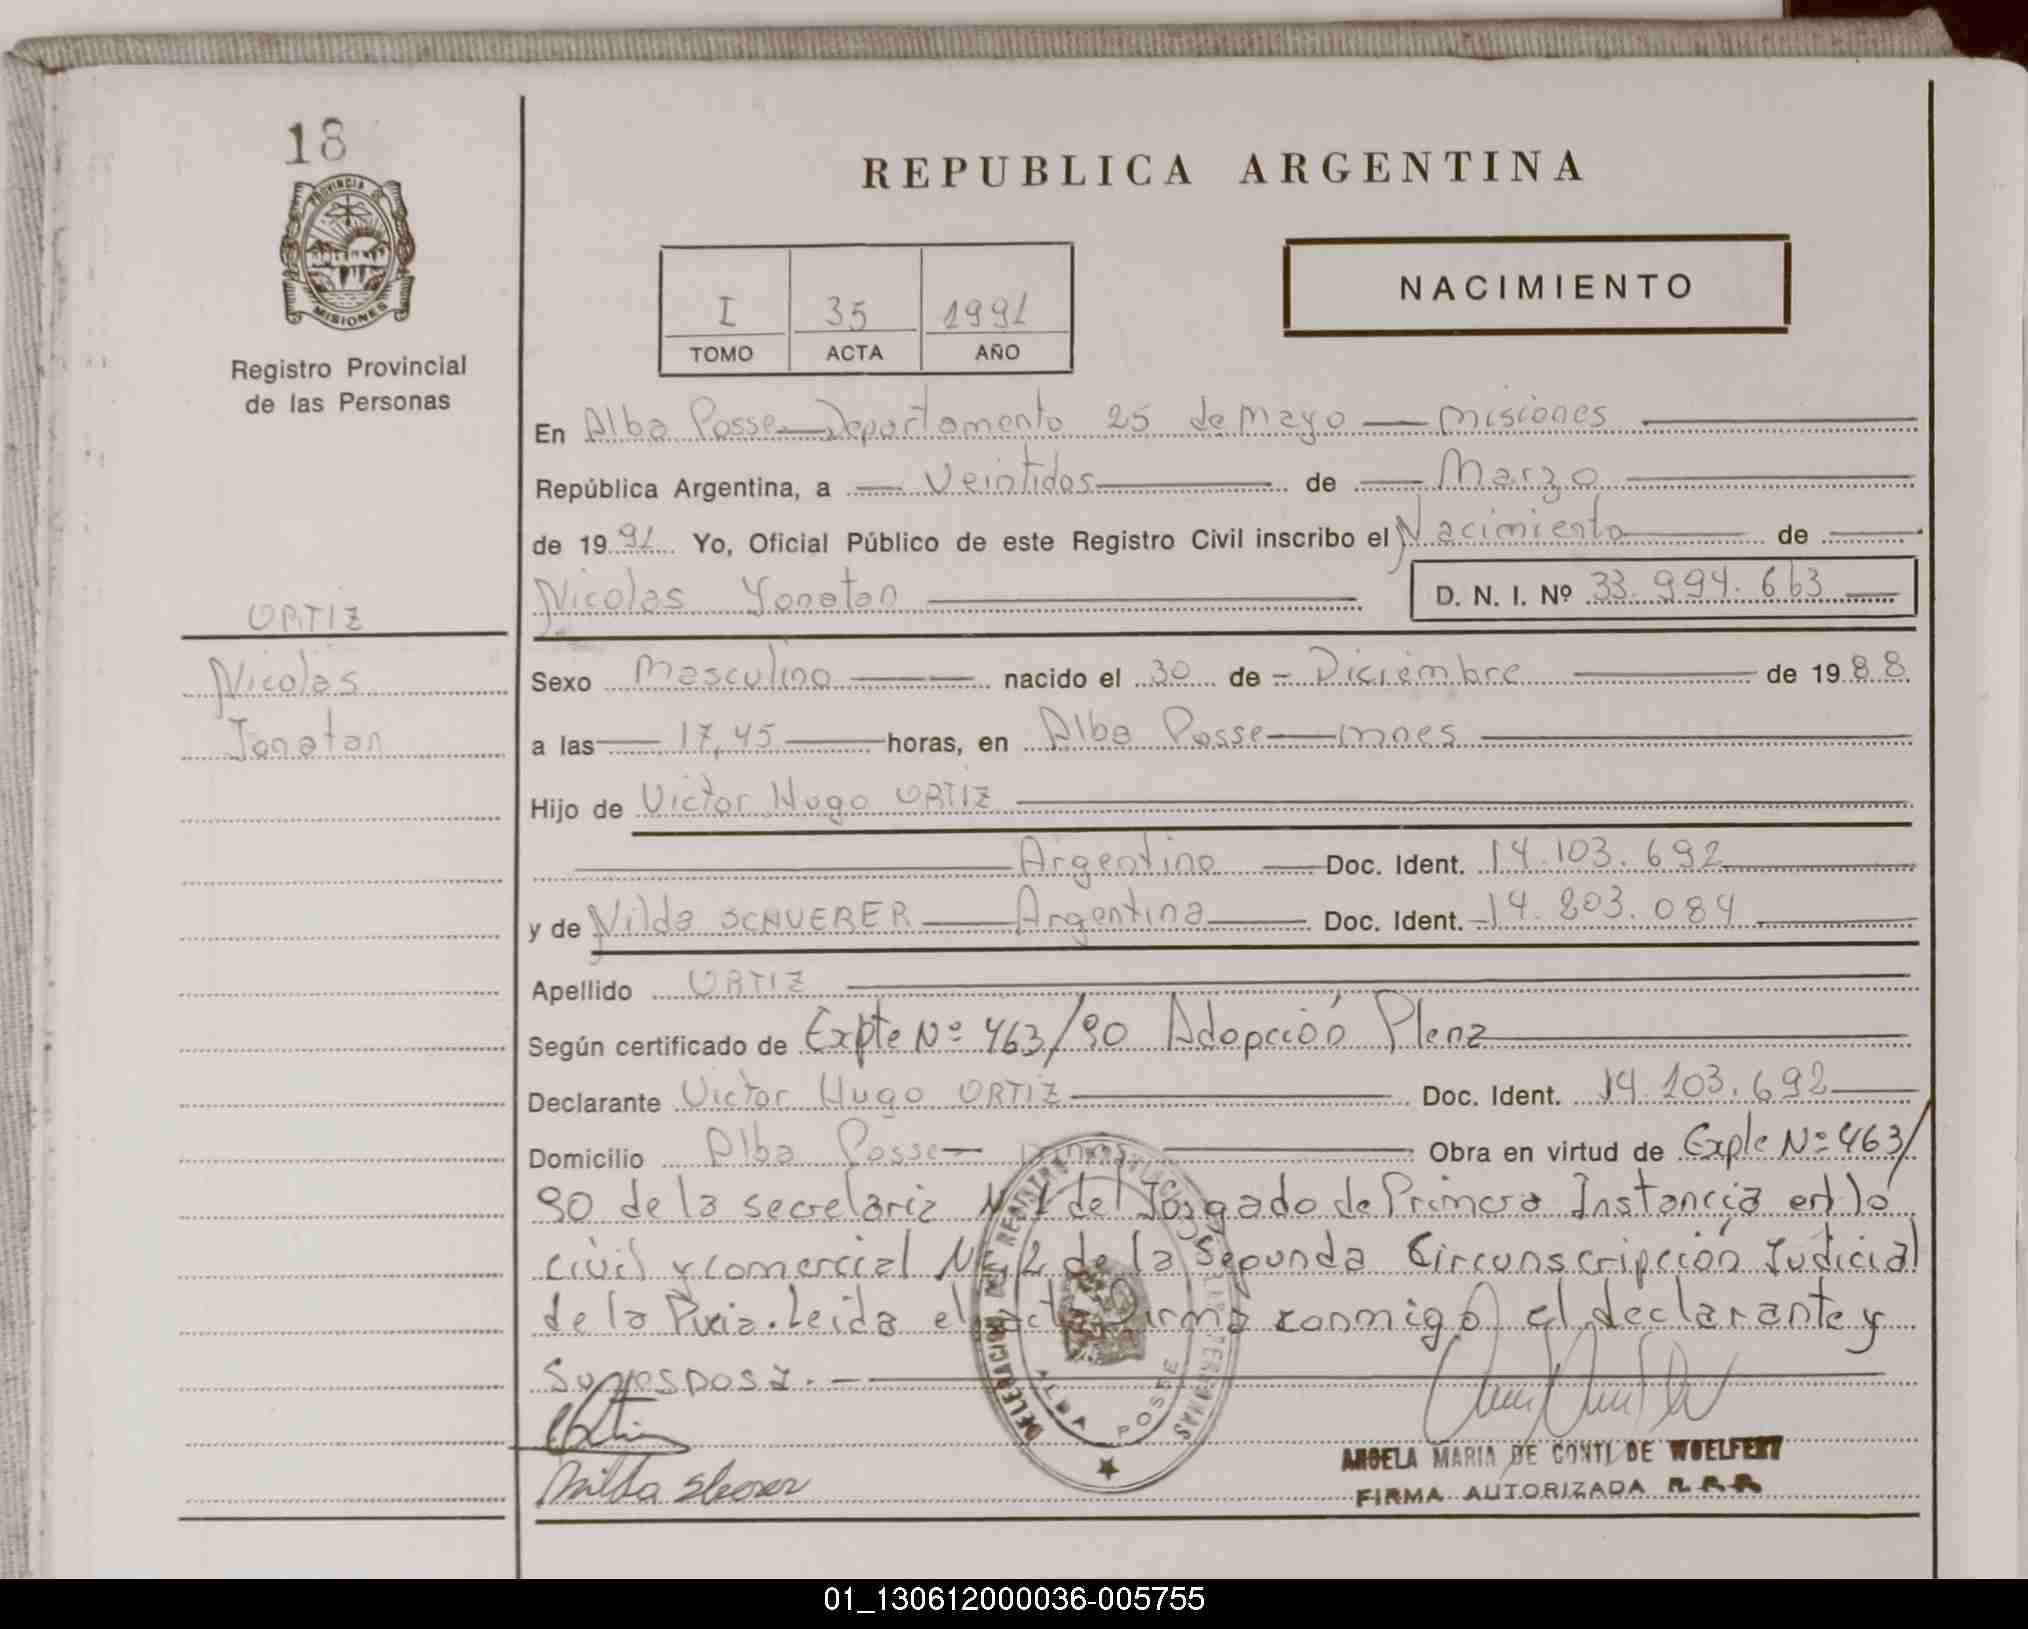 18
PROVINCIA DE
MISIONES
Registro Provincial
de las Personas
ORTIZ
Nicolas
Jonatan
REPUBLICA ARGENTINA
I 35 1991
TOMO ACTA AÑO
NACIMIENTO
En Alba Posse—Departamento 25 de Mayo — Misiones
República Argentina, a — Veintidos — de — Marzo
de 1991 Yo, Oficial Público de este Registro Civil inscribo el Nacimiento — de
Nicolas Yonatan — D. N. I. Nº 33.994.663
Sexo Masculino — nacido el 30 de — Diciembre — de 1988
a las — 17,45 — horas, en Alba Posse — mnes
Hijo de Victor Hugo ORTIZ
Argentino — Doc. Ident. 14.103.692
y de Nilda SCHUERER — Argentina — Doc. Ident. 14.803.084
Apellido ORTIZ
Según certificado de Expte Nº 463/90 Adopción Plena
Declarante Victor Hugo ORTIZ — Doc. Ident. 14.103.692
Domicilio Alba Posse — Obra en virtud de Expte Nº 463/
90 de la secretaria Nº 1 del Jozgado de Primera Instancia en lo
civil y comercial Nº 2 de la Segunda Circunscripción Judicial
de la Pvcia. Leida el acta Firma conmigo el declarante y
su esposa. —
DELEGACION DEL REGISTRO PROVINCIAL DE LAS PERSONAS
ALBA POSSE
ANGELA MARIA DE CONTI DE WOELFERT
FIRMA AUTORIZADA
01_130612000036-005755